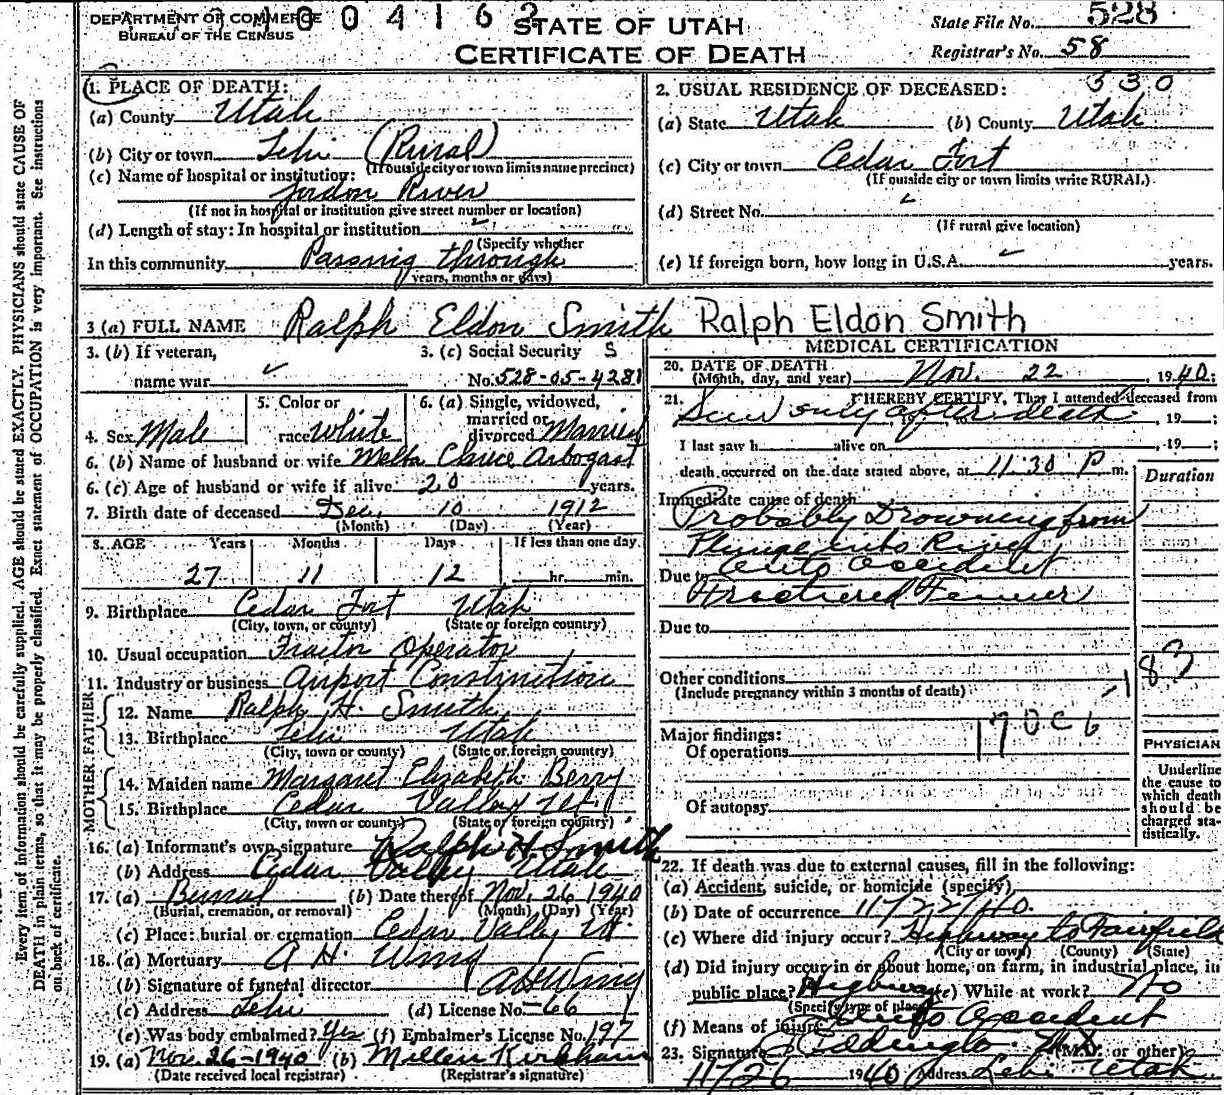 DEPARTMENT OF COMMERCE
BUREAU OF THE CENSUS
0 0 4 1 6 2
STATE OF UTAH
CERTIFICATE OF DEATH
State File No. 528
Registrar's No. 58
1. PLACE OF DEATH:
(a) County Utah
(b) City or town Lehi (Rural)
(If outside city or town limits name precinct)
(c) Name of hospital or institution:
Jordon River
(If not in hospital or institution give street number or location)
(d) Length of stay: In hospital or institution
(Specify whether
In this community Passing through
years, months or days)
330
2. USUAL RESIDENCE OF DECEASED:
(a) State Utah (b) County Utah
(c) City or town Cedar Fort
(If outside city or town limits write RURAL)
(d) Street No.
(If rural give location)
(e) If foreign born, how long in U.S.A. years.
3 (a) FULL NAME Ralph Eldon Smith Ralph Eldon Smith
3. (b) If veteran,
name war
3. (c) Social Security S
No. 528-05-4281
4. Sex Male
5. Color or
race White
6. (a) Single, widowed,
married or
divorced Married
6. (b) Name of husband or wife Melba Arbogast
6. (c) Age of husband or wife if alive 20 years.
7. Birth date of deceased Dec. 10 1912
(Month) (Day) (Year)
8. AGE Years Months Days If less than one day
27 11 12 hr. min.
9. Birthplace Cedar Fort Utah
(City, town, or county) (State or foreign country)
10. Usual occupation Tractor Operator
11. Industry or business Airport Construction
FATHER
12. Name Ralph H. Smith
13. Birthplace Lehi Utah
(City, town or county) (State or foreign country)
MOTHER
14. Maiden name Margaret Elizabeth Berry
15. Birthplace Cedar Valley Ut.
(City, town or county) (State or foreign country)
16. (a) Informant's own signature Ralph H. Smith
(b) Address Cedar Valley Utah
17. (a) Burial (b) Date thereof Nov. 26 1940
(Burial, cremation, or removal) (Month) (Day) (Year)
(c) Place: burial or cremation Cedar Valley Ut.
18. (a) Mortuary A. H. Wing
(b) Signature of funeral director A H Wing
(c) Address Lehi (d) License No. 66
(e) Was body embalmed? Yes (f) Embalmer's License No. 197
19. (a) Nov. 26-1940 (b) Kirkham
(Date received local registrar) (Registrar's signature)
MEDICAL CERTIFICATION
20. DATE OF DEATH
(Month, day, and year) Nov. 22 1940;
21. I HEREBY CERTIFY, That I attended deceased from
Seen only after death, 19 ;
I last saw h alive on , 19 ;
death occurred on the date stated above, at 11:30 P m.
Duration
Immediate cause of death
Probably Drowning from
Plunge into River
Due to auto accident
Fractured Femur
Due to
Other conditions
(Include pregnancy within 3 months of death)
83
170c6
Major findings:
Of operations
Of autopsy
PHYSICIAN
Underline
the cause to
which death
should be
charged sta-
tistically.
22. If death was due to external causes, fill in the following:
(a) Accident, suicide, or homicide (specify)
(b) Date of occurrence 11/22/40.
(c) Where did injury occur? Highway to Fairfield
(City or town) (County) (State)
(d) Did injury occur in or about home, on farm, in industrial place, in
public place? Highway (e) While at work? No
(Specify type of place)
(f) Means of injury Auto Accident
23. Signature (M.D. or other)
11/26 1940 Address Lehi Utah
Every item of information should be carefully supplied. AGE should be stated EXACTLY. PHYSICIANS should state CAUSE OF
DEATH in plain terms, so that it may be properly classified. Exact statement of OCCUPATION is very important. See instructions
on back of certificate.